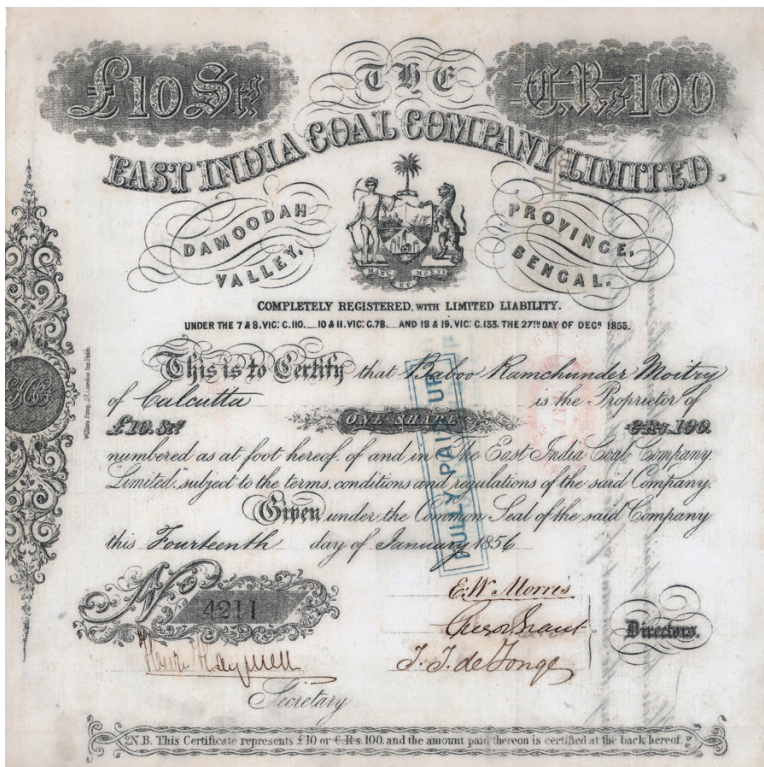 £10 Stg
THE
C.Rs 100
EAST INDIA COAL COMPANY LIMITED.
DAMOODAH
VALLEY,
PROVINCE,
BENGAL.
COMPLETELY REGISTERED, WITH LIMITED LIABILITY.
UNDER THE 7 & 8. VIC: C.110. 10 & 11. VIC: C.78. AND 18 & 19. VIC: C.133. THE 27TH DAY OF DECR 1855.
This is to Certify that Baboo Ramchunder Moitry
of Calcutta is the Proprietor of
£10. Stg ONE SHARE C.Rs. 100.
numbered as at foot hereof, of and in "The East India Coal Company
Limited," subject to the terms, conditions and regulations of the said Company.
Given under the Common Seal of the said Company
this Fourteenth day of January 1856
FULLY PAID UP
No 4211
E. W. Morris
J. J. de Jonge
Directors.
Secretary
N.B. This Certificate represents £10 or C.Rs. 100. and the amount paid thereon is certified at the back hereof.